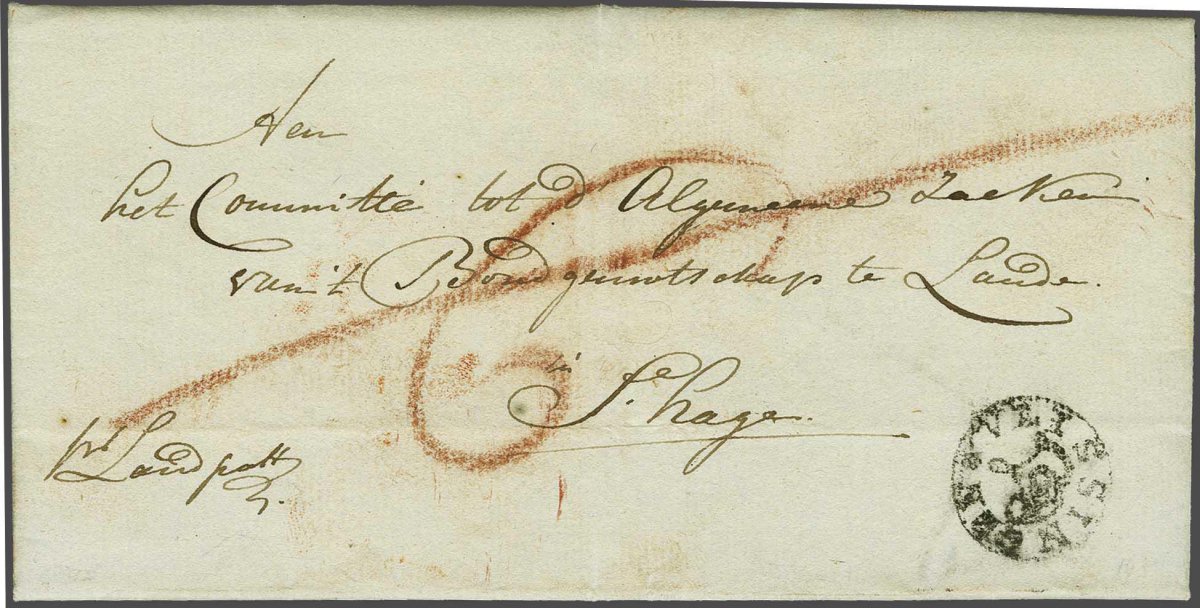 Aen
het Committé tot d' Algemeene Zaeken
van 't Bondgenootschap te Lande.
in
S.e hage.
pr. Landpost
VLISSINGEN